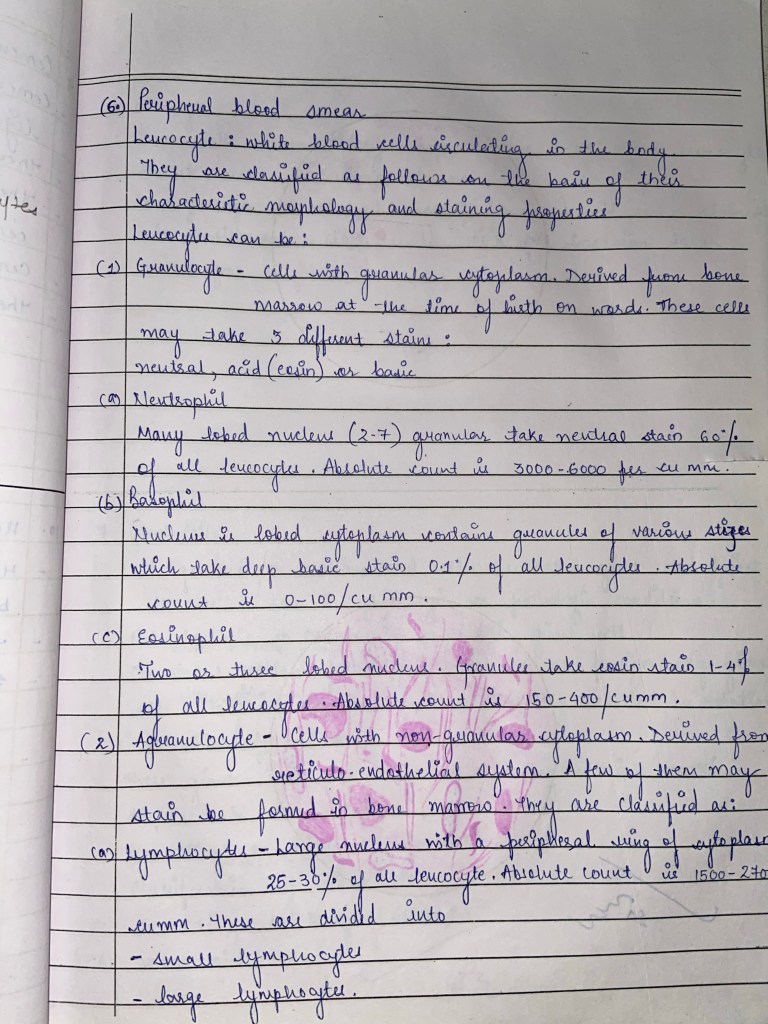 (6.) Peripheral blood smear
Leucocyte : white blood cells circulating in the body
They are classified as follows on the basis of their
characteristic morphology and staining properties
Leucocytes can be :
(1) Granulocyte - cells with granular cytoplasm. Derived from bone
marrow at the time of birth on words. These cells
may take 3 different stains :
neutral, acid (eosin) or basic
(a) Neutrophil
Many lobed nucleus (2-7) granular take neutral stain 60%
of all leucocytes. Absolute count is 3000-6000 per cu mm.
(b) Basophil
Nucleus is lobed cytoplasm contains granules of various
which take deep basic stain 0.1% of all leucocytes. Absolute
count is 0-100/cu mm.
(c) Eosinophil
Two or three lobed nucleus. Granules take eosin stain 1-4%
of all leucocytes. Absolute count is 150-400/cumm.
(2) Agranulocyte - Cells with non-granular cytoplasm. Derived from
reticulo-endothelial system. A few of them may
stain be formed in bone marrow. They are classified as:
(a) Lymphocytes - Large nucleus with a peripheral ring of cytoplasm
25-30% of all leucocyte. Absolute count is 1500-270
cumm. These are divided into
- small lymphocytes
- large lymphocytes.